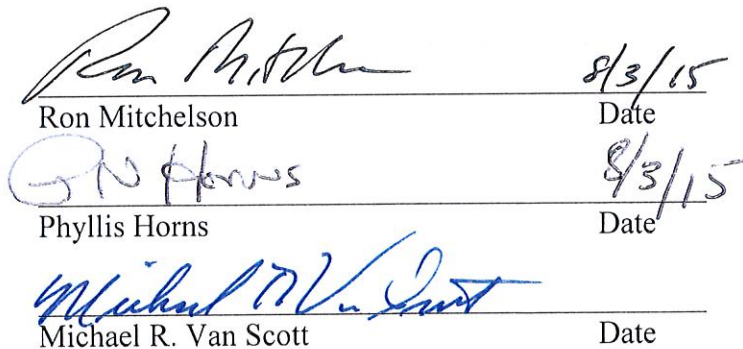 Ron Mitchelson 8/3/15
Ron Mitchelson Date
PN Horns 8/3/15
Phyllis Horns Date
Michael R Van Scott
Michael R. Van Scott Date